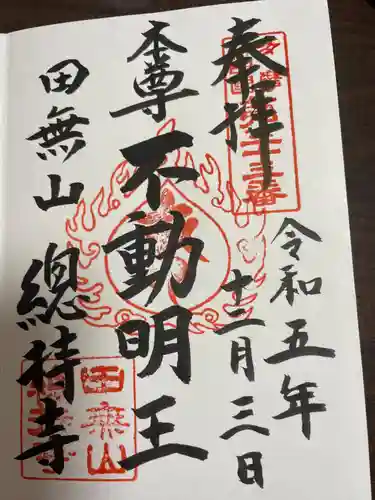 奉拝
令和五年
十二月三日
本尊
不動明王
田無山
總持寺
田無山